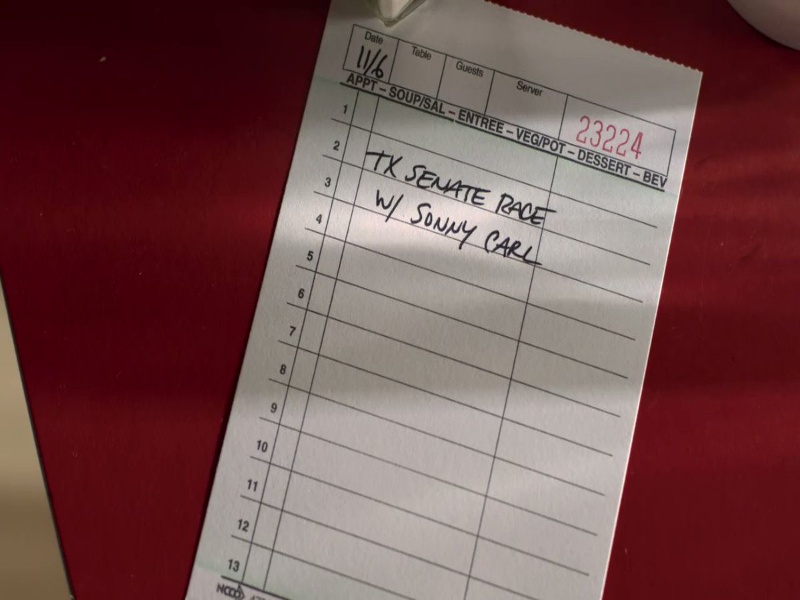 Date Table Guests Server
11/6
23224
APPT – SOUP/SAL – ENTREE – VEG/POT – DESSERT – BEV
1
2 TX SENATE RACE
3 W/ SONNY CARL
4
5
6
7
8
9
10
11
12
13